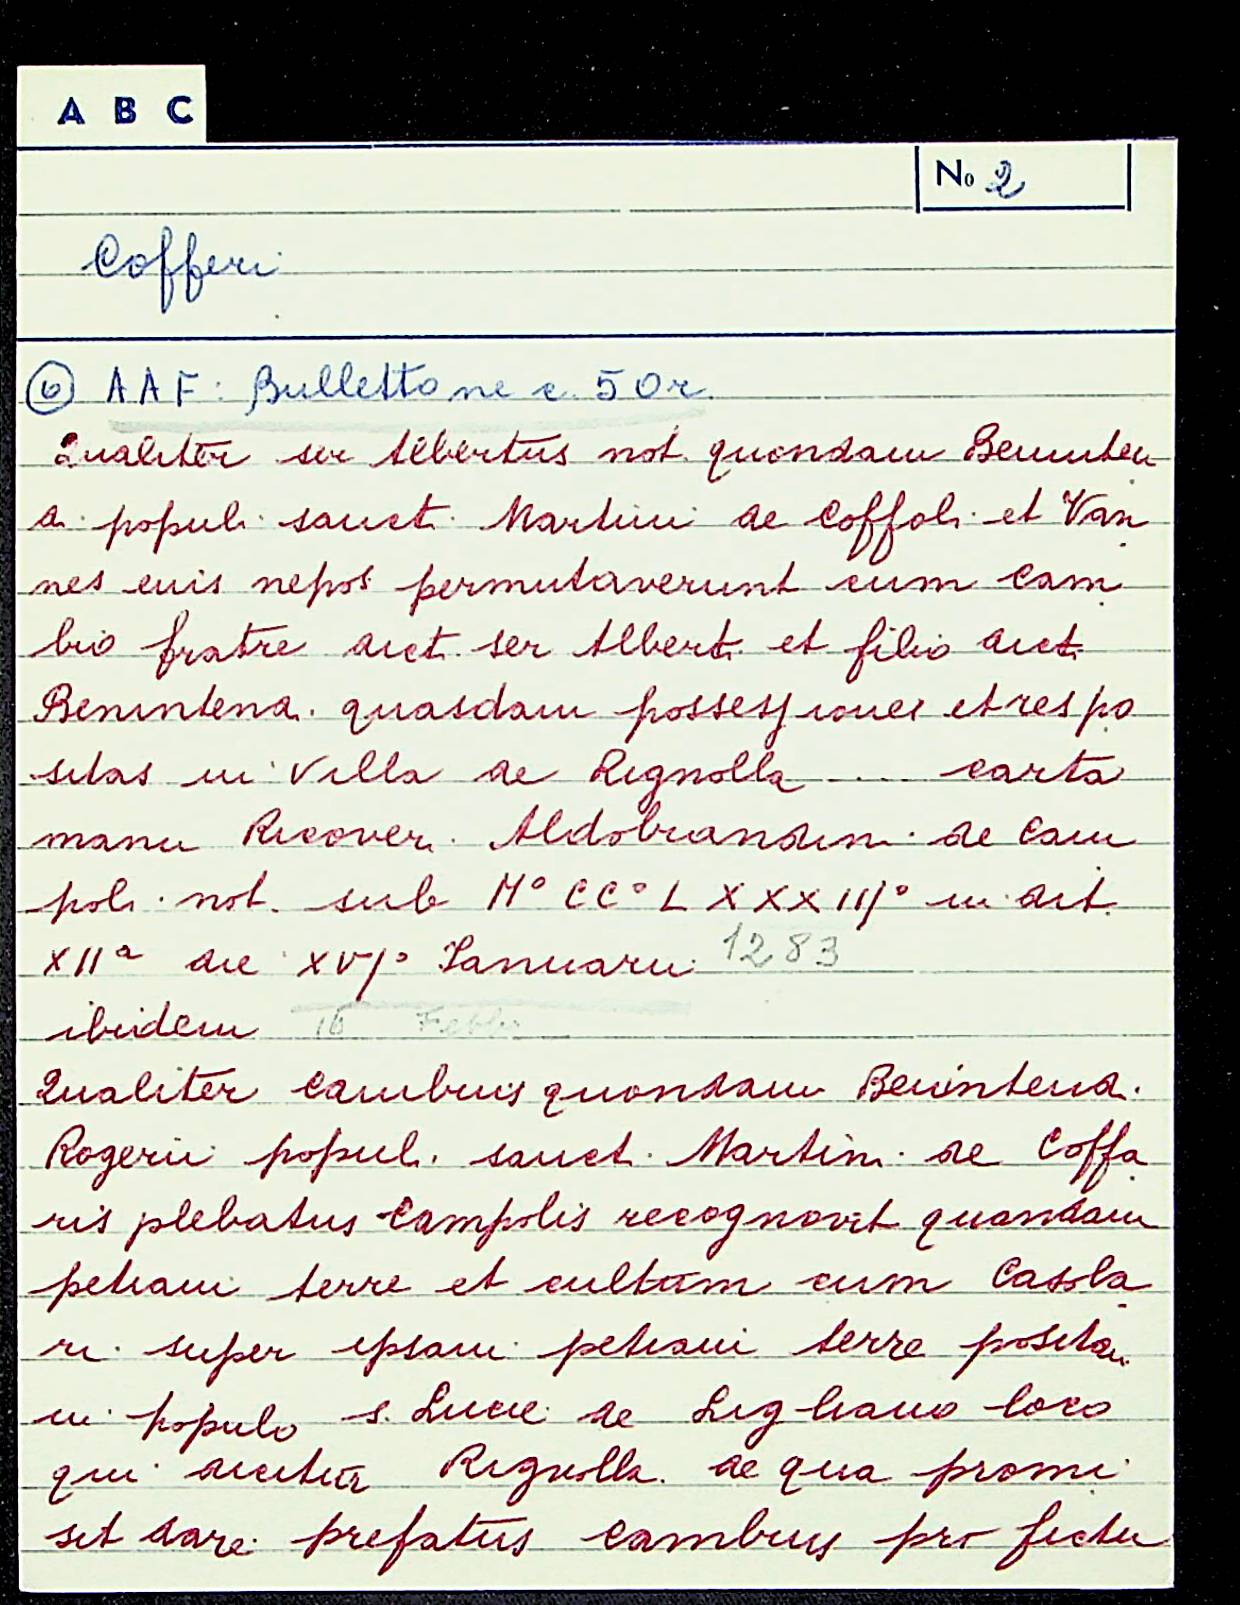 A B C
No 2
Cofferi
⑥ AAF: Bullettone c. 50r.
Qualiter ser Albertus not. quondam Beninten
d. popul. sanct. Martini de Coffol. et Van
nes euis nepos permutaverunt cum Cam
bio fratre dict. ser Albert. et filio dict.
Benintend. quasdam possessiones et res po
sitas in Villa de Rignolla .... carta
manu Ricover. Aldobrandin. de Cam
pol. not. sub M° CC° L X X X III° in dit.
XIIª die XVI° Ianuarii 1283
ibidem 16 Febb.
Qualiter Cambius quondam Benintend.
Rogerii popul. sanct. Martin. de Coffa
ris plebatus Campolis recognovit quandam
petiam terre et cultam cum Casola
ri super ipsam petiam terre positam
in populo s. Lucie de Ligliano loco
qui dicitur Rignolla. de qua promi
sit dare prefatus Cambius pro fictu